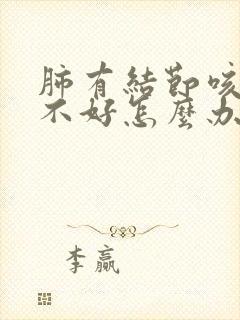 肺有結節咳
不好怎麼办
李赢